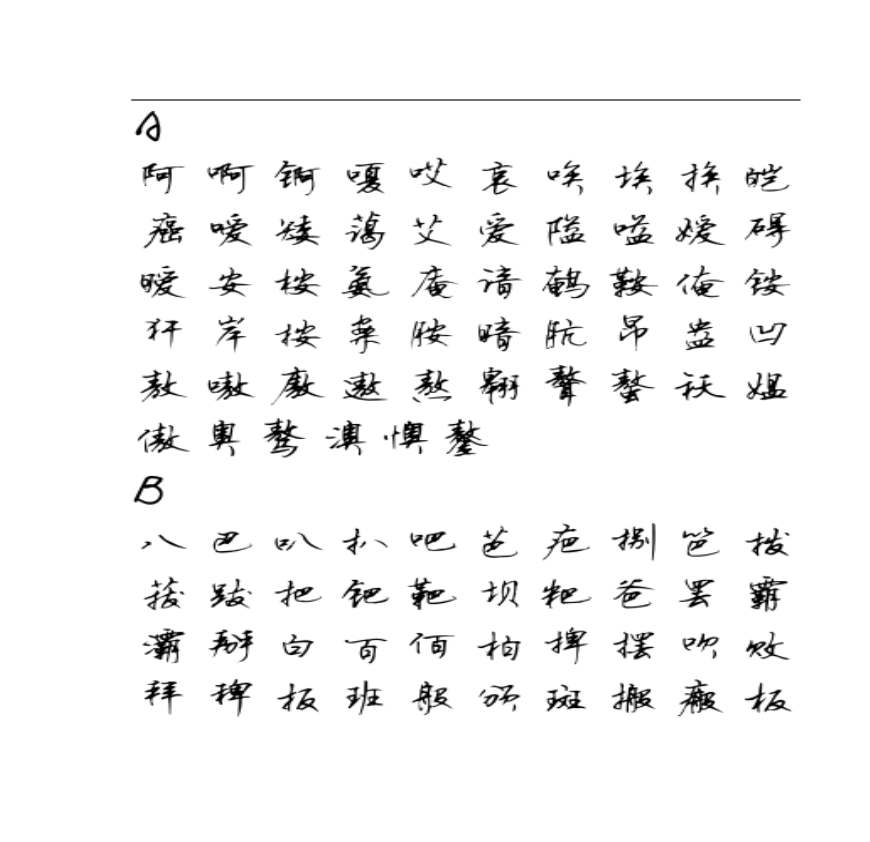 A
阿 啊 锕 嗄 哎 哀 唉 埃 挨 皑
癌 嗳 矮 蔼 艾 爱 隘 嗌 嫒 碍
暧 安 桉 氨 庵 谙 鹌 鞍 俺 铵
犴 岸 按 案 胺 暗 肮 昂 盎 凹
敖 嗷 廒 遨 熬 翱 聱 螯 袄 媪
傲 奥 骜 澳 懊 鏊
B
八 巴 叭 扒 吧 芭 疤 捌 笆 拨
菝 跋 把 钯 靶 坝 粑 爸 罢 霸
灞 掰 白 百 佰 柏 捭 摆 败
拜 稗 扳 班 般 颁 斑 搬 瘢 板